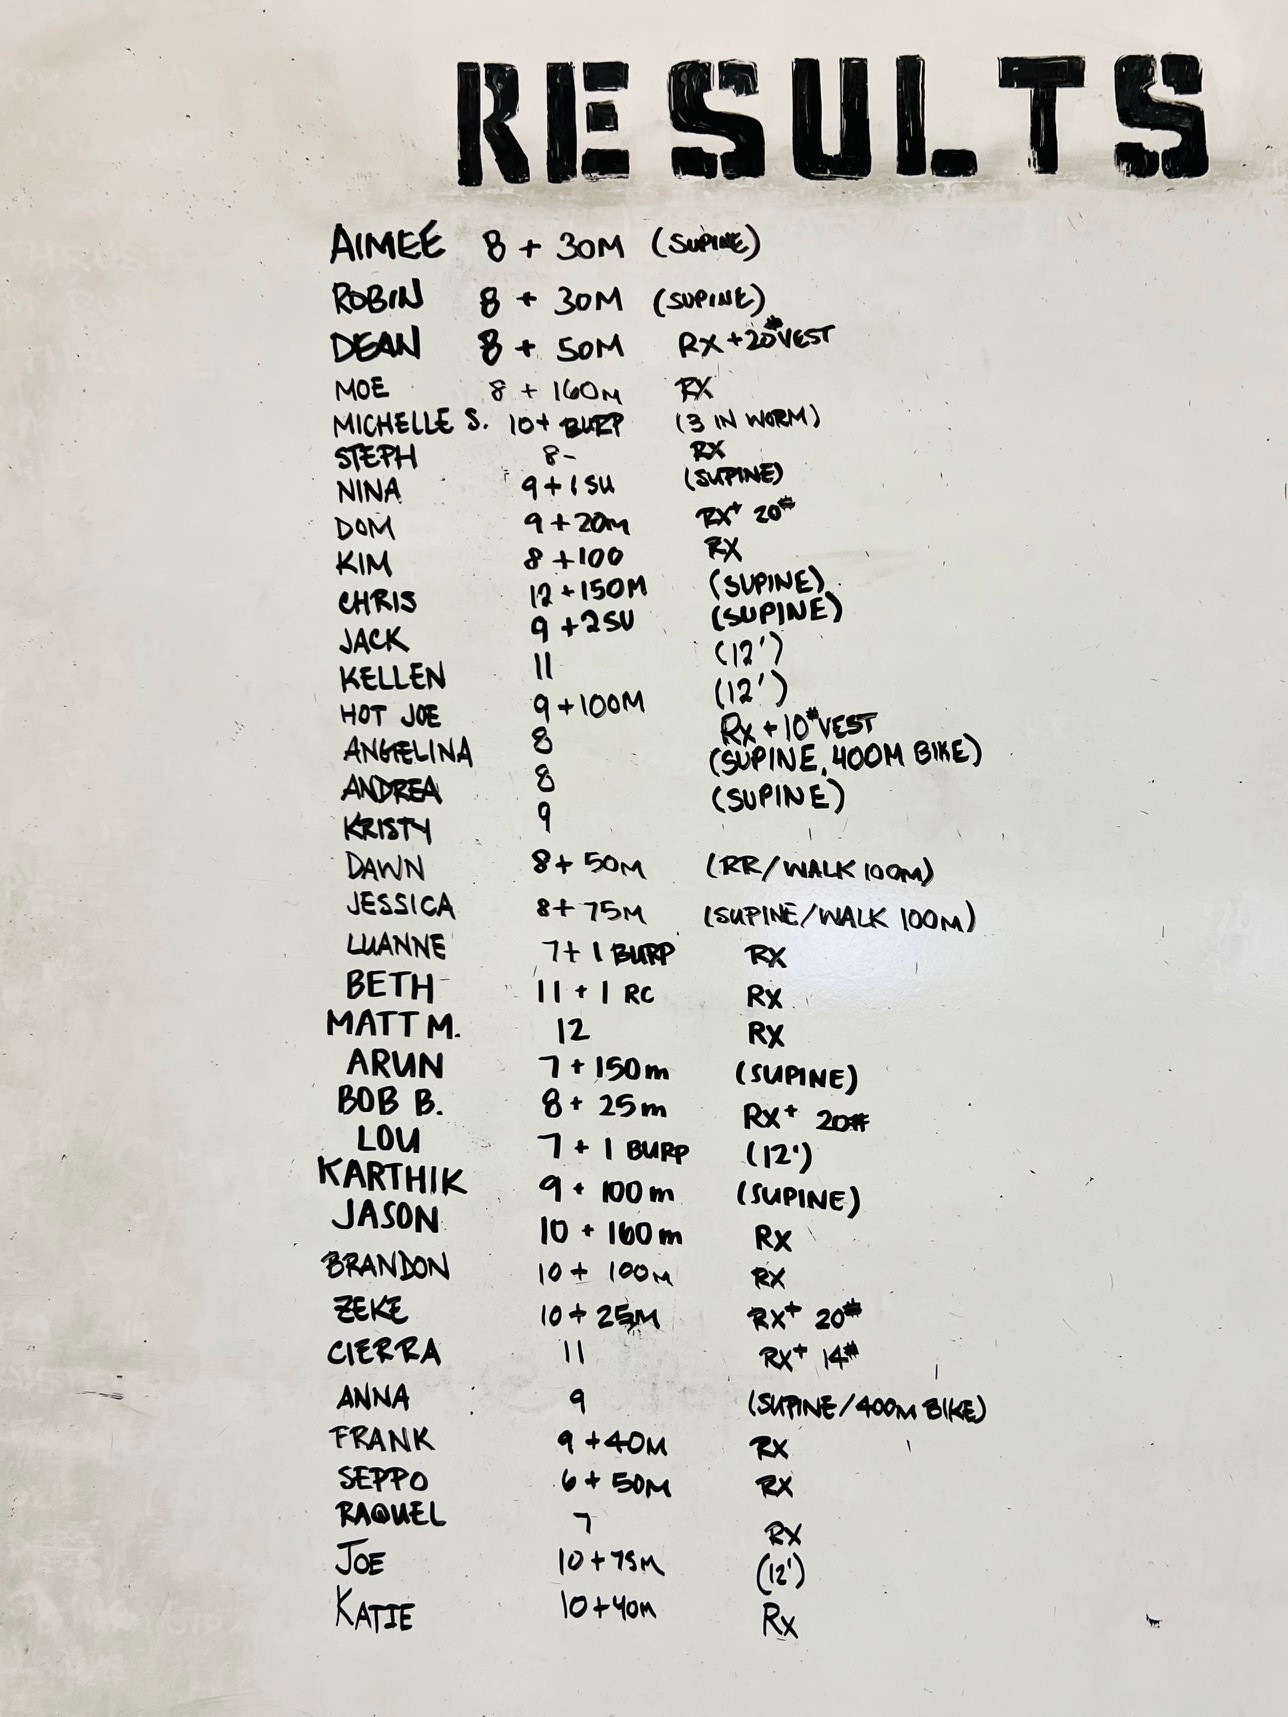 RESULTS
AIMEE 8 + 30M (SUPINE)
ROBIN 8 + 30M (SUPINE)
DEAN 8 + 50M RX +20# VEST
MOE 8 + 160M RX
MICHELLE S. 10+ BURP (3 IN WORM)
STEPH 8- RX
NINA 9+1SU (SUPINE)
DOM 9+20M RX+ 20#
KIM 8+100 RX
CHRIS 12+150M (SUPINE)
JACK 9+2SU (SUPINE)
KELLEN 11 (12')
HOT JOE 9+100M (12')
ANGELINA 8 RX + 10# VEST
ANDREA 8 (SUPINE, 400M BIKE)
KRISTY 9 (SUPINE)
DAWN 8+ 50M (RR/WALK 100M)
JESSICA 8+ 75M (SUPINE/WALK 100M)
LUANNE 7+ 1 BURP RX
BETH 11 + 1 RC RX
MATT M. 12 RX
ARUN 7 + 150m (SUPINE)
BOB B. 8 + 25m RX+ 20#
LOU 7 + 1 BURP (12')
KARTHIK 9 + 100m (SUPINE)
JASON 10 + 160m RX
BRANDON 10 + 100M RX
ZEKE 10 + 25M RX+ 20#
CIERRA 11 RX+ 14#
ANNA 9 (SUPINE/400M BIKE)
FRANK 9 +40M RX
SEPPO 6 + 50M RX
RAQUEL 7 RX
JOE 10+75M (12')
KATIE 10+40M RX